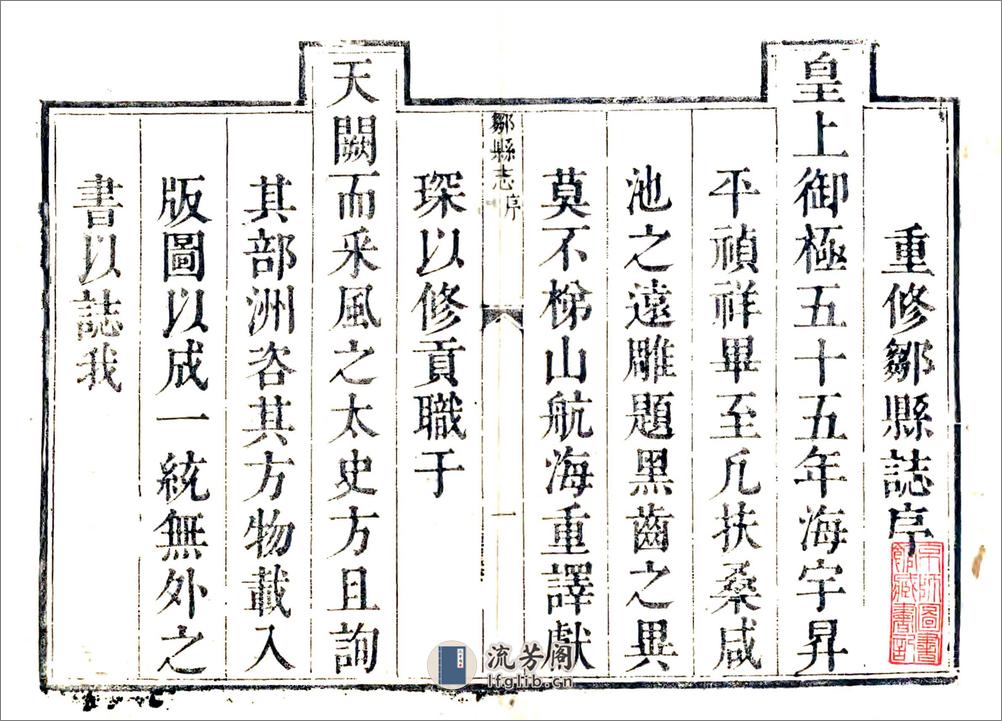 重修鄒縣誌序
皇上御極五十五年海宇昇
平禎祥畢至凡扶桑咸
池之遠雕題黑齒之異
莫不梯山航海重譯獻
鄒縣志 序 一
琛以修貢職于
天闕而采風之太史方且詢
其部洲咨其方物載入
版圖以成一統無外之
書以誌我
京師圖書
館藏書記
流芳阁
lfglib.cn